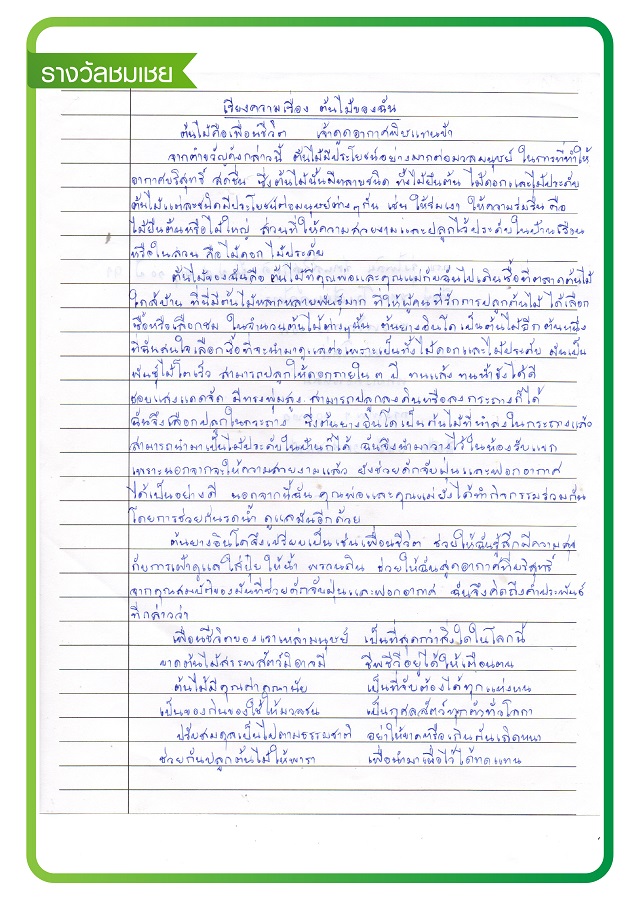 รางวัลชมเชย
เรียงความเรื่อง ต้นไม้ของฉัน
ต้นไม้คือเพื่อนชีวิต เจ้าดูดอากาศพิษแทนข้า
จากคำขวัญดังกล่าวนี้ ต้นไม้มีประโยชน์อย่างมากต่อมวลมนุษย์ ในการที่ทำให้
อากาศบริสุทธิ์ สดชื่น ซึ่งต้นไม้นั้นมีหลายชนิด ทั้งไม้ยืนต้น ไม้ดอกและไม้ประดับ
ต้นไม้แต่ละชนิดมีประโยชน์ต่อมนุษย์ต่างๆกัน เช่น ให้ร่มเงา ให้ความร่มรื่น คือ
ไม้ยืนต้นหรือไม้ใหญ่ ส่วนที่ให้ความสวยงามและปลูกไว้ประดับในบ้านเรือน
หรือในสวน คือไม้ดอก ไม้ประดับ
ต้นไม้ของฉันคือ ต้นไม้ที่คุณพ่อและคุณแม่กับฉันไปเดินซื้อที่ตลาดต้นไม้
ใกล้บ้าน ที่นี่มีต้นไม้หลากหลายพันธุ์มาก ที่ให้ผู้คนที่รักการปลูกต้นไม้ ได้เลือก
ซื้อหรือเลือกชม ในจำนวนต้นไม้ต่างๆนั้น ต้นยางอินโด เป็นต้นไม้อีกต้นหนึ่ง
ที่ฉันสนใจเลือกซื้อที่จะนำมาดูแลต่อเพราะเป็นทั้งไม้ดอกและไม้ประดับ มันเป็น
พันธุ์ไม้โตเร็ว สามารถปลูกให้ดอกภายใน ๓ ปี ทนแล้ง ทนน้ำขังได้ดี
ชอบแสงแดดจัด มีทรงพุ่มสูง สามารถปลูกลงดินหรือลงกระถางก็ได้
ฉันจึงเลือกปลูกในกระถาง ซึ่งต้นยางอินโดเป็นต้นไม้ที่นำลงในกระถางแล้ว
สามารถนำมาเป็นไม้ประดับในบ้านก็ได้ ฉันจึงนำมาวางไว้ในห้องรับแขก
เพราะนอกจากจะให้ความสวยงามแล้ว ยังช่วยดักจับฝุ่นและฟอกอากาศ
ได้เป็นอย่างดี นอกจากนี้ฉัน คุณพ่อและคุณแม่ยังได้ทำกิจกรรมร่วมกัน
โดยการช่วยกันรดน้ำ ดูแลมันอีกด้วย
ต้นยางอินโดจึงเปรียบเป็นเช่นเพื่อนชีวิต ช่วยให้ฉันรู้สึกมีความสุข
กับการเฝ้าดูแลใส่ปุ๋ย ให้น้ำ พรวนดิน ช่วยให้ฉันสูดอากาศที่บริสุทธิ์
จากคุณสมบัติของมันที่ช่วยดักจับฝุ่นและฟอกอากาศ ฉันจึงคิดถึงคำประพันธ์
ที่กล่าวว่า
เพื่อนชีวิตของเราเหล่ามนุษย์ เป็นที่สุดกว่าสิ่งใดในโลกนี้
ขาดต้นไม้สารพสัตว์มิอาจมี ชีพชีวีอยู่ได้ให้เตือนตน
ต้นไม้มีคุณค่าคุณานัย เป็นที่จับต้องได้ทุกแห่งหน
เป็นของกินของใช้ให้มวลชน เป็นกุศลสัตว์ทุกตัวทั่วโลกา
ปรับสมดุลเป็นไปตามธรรมชาติ อย่าให้ขาดหรือเกินดันเถิดหนา
ช่วยกันปลูกต้นไม้ให้พารา เพื่อนำมาเผื่อไว้ได้ทดแทน